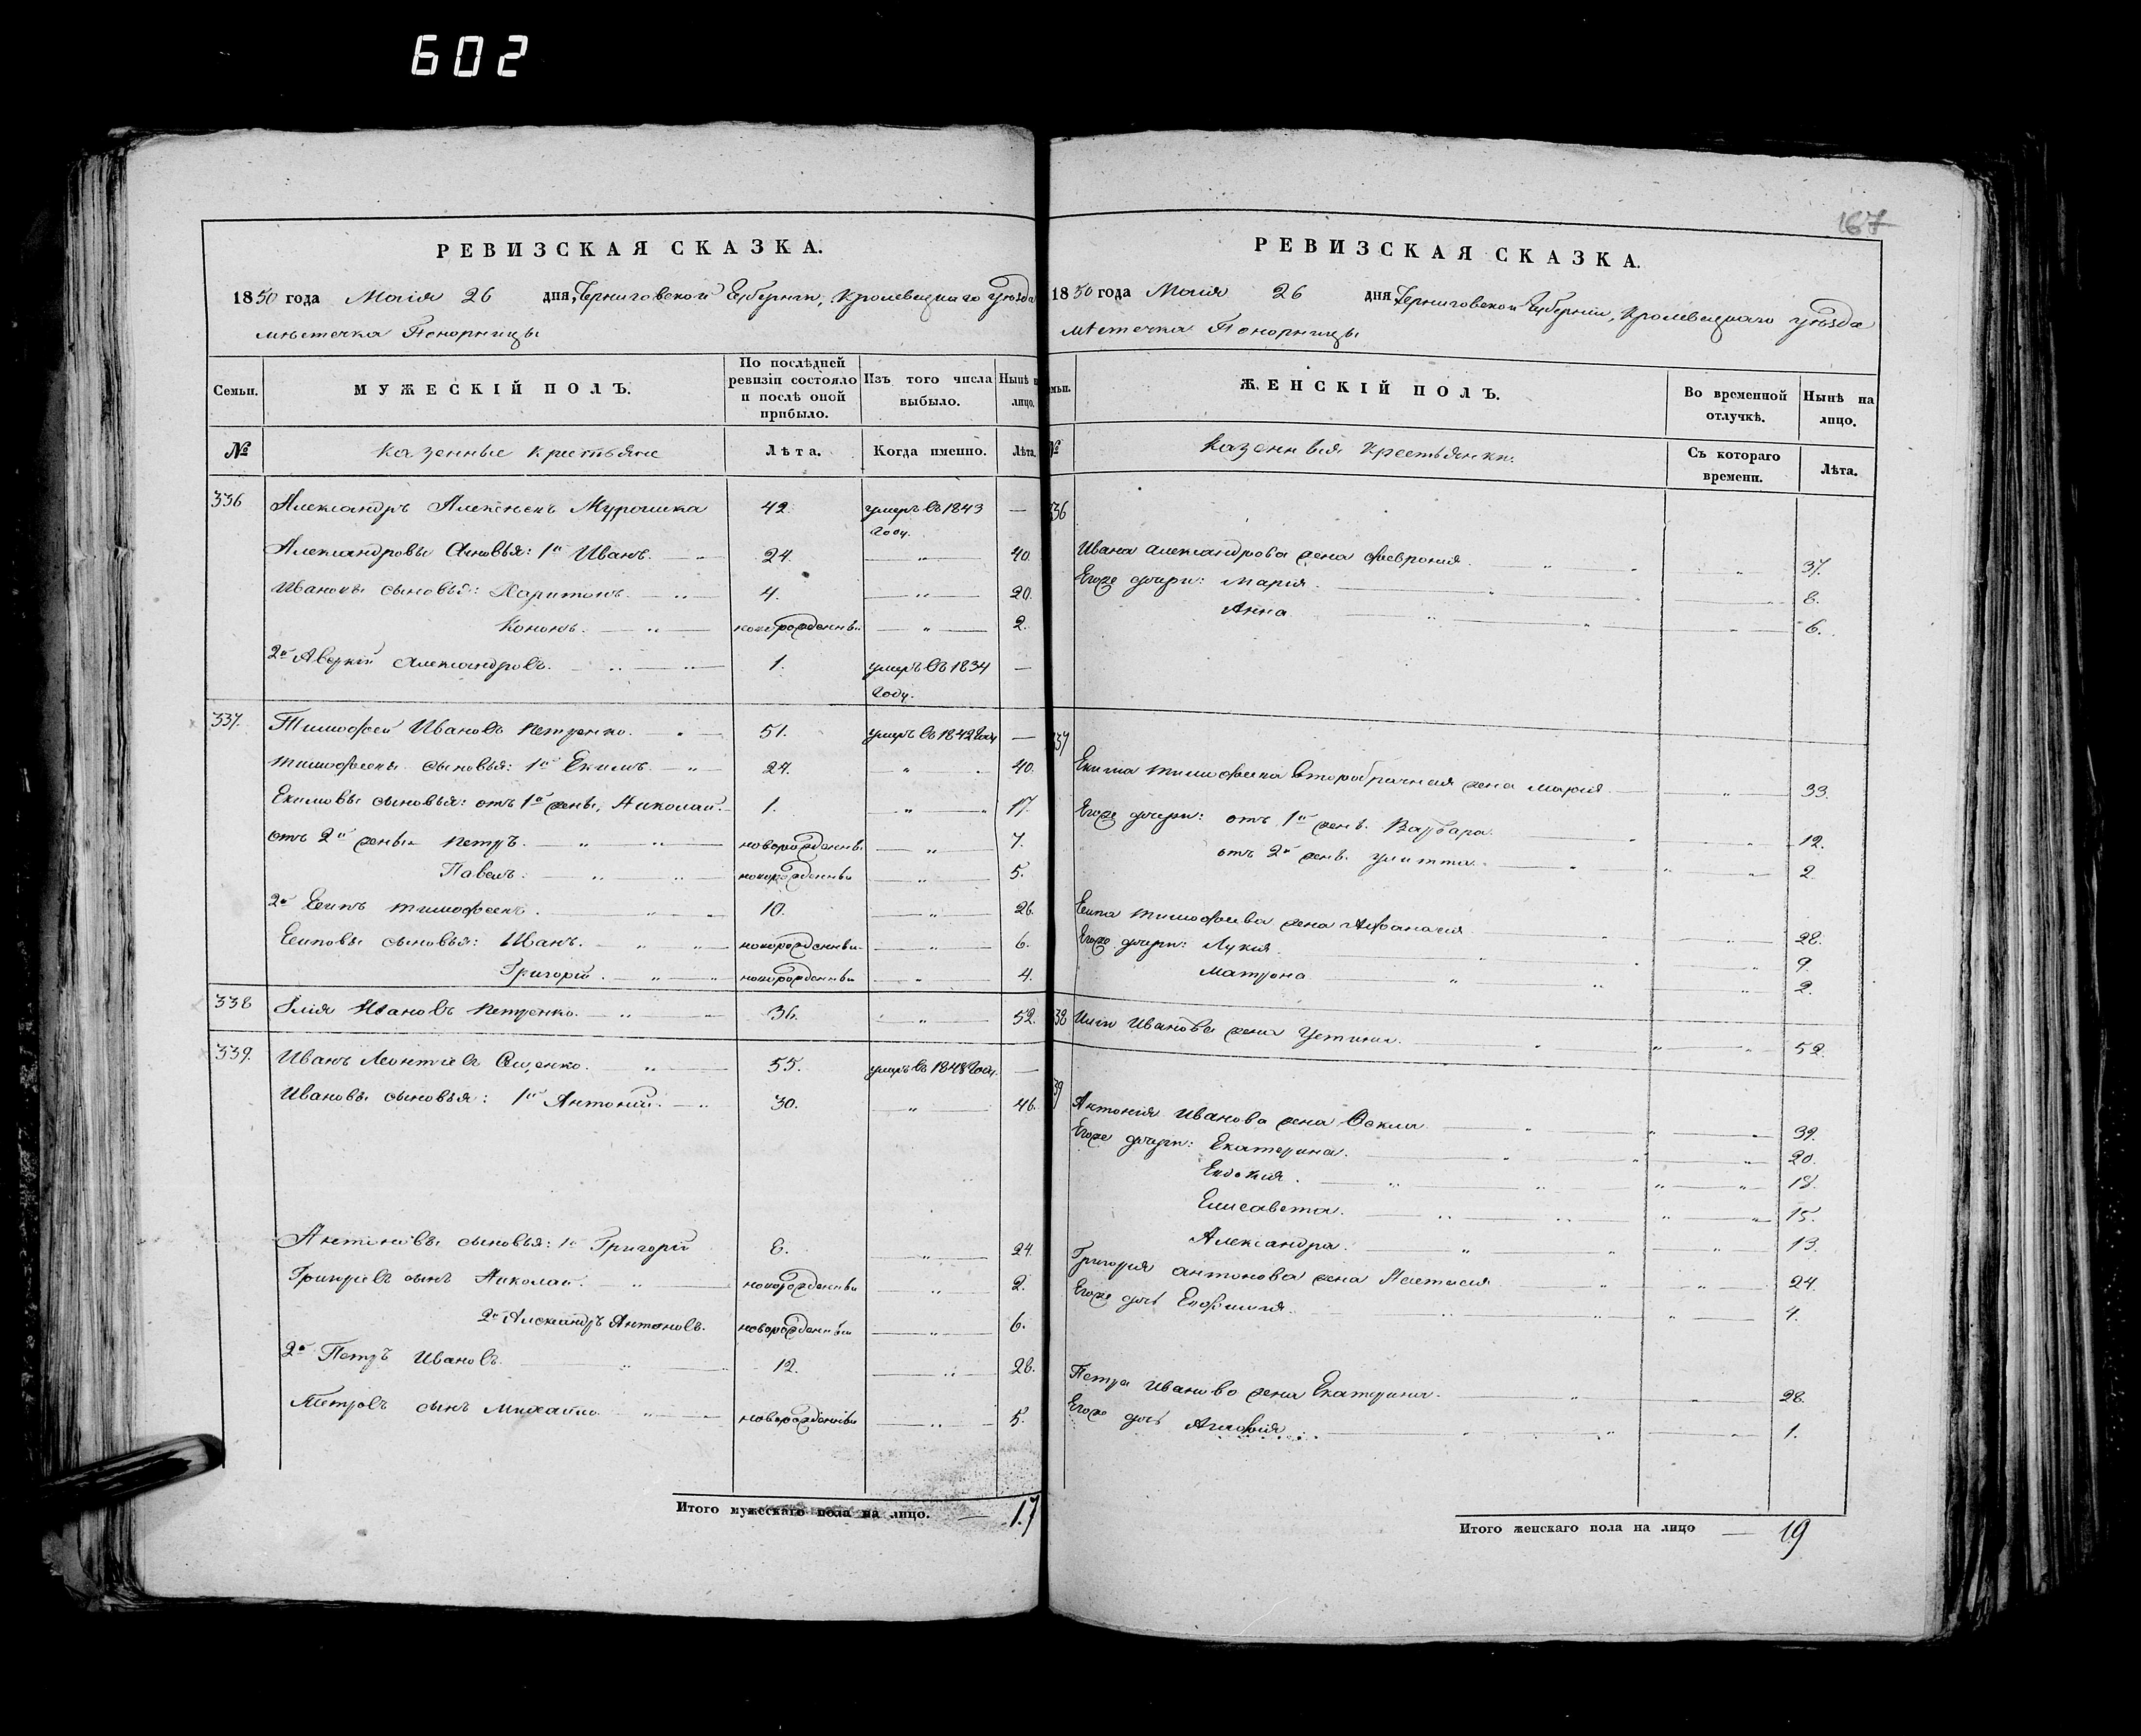 602
167
РЕВИЗСКАЯ СКАЗКА.
1850 года Маія 26 дня, Черниговской Губерніи, Кролевецкаго уѣзда
мѣстечка Понорницы
Семьи. МУЖЕСКІЙ ПОЛЪ. По послѣдней ревизіи состояло и послѣ оной прибыло. Изъ того числа выбыло. Нынѣ на лицо.
№ Казенные Крестьяне Лѣта. Когда именно. Лѣта.
336 Александръ Алексѣевъ Мурашка 42. умеръ въ 1843 году. —
Александровы Сыновья: 1й Иванъ. 24. 40.
Ивановы сыновья: Харитонъ. 4. 20.
Кононъ. новорожденный 2.
2й Аверкій Александровъ. 1. умеръ въ 1834 году. —
337. Тимофей Ивановъ Петренко. 51. умеръ въ 1842 году —
Тимофеевы сыновья: 1й Екимъ. 24. 40.
Екимовы сыновья: отъ 1й жены, Николай. 1. 17.
отъ 2й жены Петръ. новорожденны. 7.
Павелъ. новорожденны 5.
2й Есипъ Тимофеевъ. 10. 26.
Есиповы сыновья: Иванъ. новорожденны. 6.
Григорій. новорожденны 4.
338 Илія Ивановъ Петренко. 36. 52.
339. Иванъ Леонтіевъ Ященко. 55. умеръ въ 1848 году. —
Ивановы сыновья: 1й Антоній. 30. 46.
Антоніевы сыновья: 1й Григорій 8. 24.
Григоріевъ сынъ Николай. новорожденны 2.
2й Александръ Антоновъ. новорожденный 6.
2й Петръ Ивановъ. 12. 28.
Петровъ сынъ Михайло. новорожденный 5.
Итого мужескаго пола на лицо. — 17
РЕВИЗСКАЯ СКАЗКА.
1850 года Маія 26 дня Черниговской Губерніи, Кролевецкаго уѣзда
мѣстечка Понорницы
ЖЕНСКІЙ ПОЛЪ. Во временной отлучкѣ. Нынѣ на лицо.
№ Казенныя Крестьянки. Съ котораго времени. Лѣта.
336
Ивана Александрова жена Феврония. 37.
Егоже дочери: Марія. 8.
Анна 6.
337
Екима Тимофеева второбрачная жена Марія. 33.
Егоже дочери: отъ 1й жены. Варвара. 12.
отъ 2й жены. Улитта. 2.
Есипа Тимофеева жена Афанасія 28.
Егоже дочери: Лукія. 9.
Матрона 2.
338 Иліи Иванова жена Устинія. 52.
339
Антонія Иванова жена Фекла. 39.
Егоже дочери: Екатерина. 20.
Евдокія. 18.
Елисавета. 15.
Александра. 13.
Григорія Антонова жена Настасія 24.
Егоже дочь Евфимія. 4.
Петра Иваново жена Екатерина. 28.
Егоже дочь Агафія. 1.
Итого женскаго пола на лицо — 19